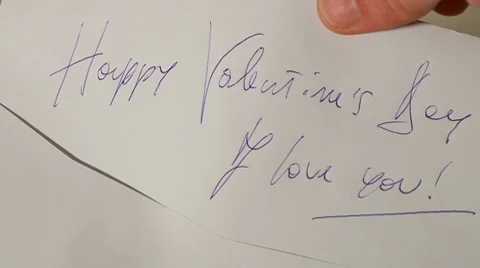 Happy Valentine's Day
I love you!